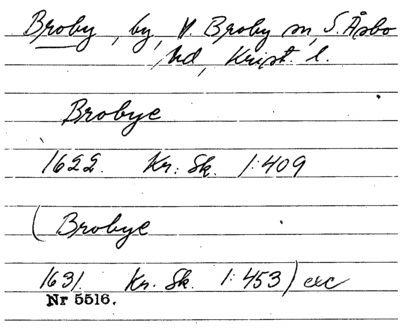 Broby, by, V. Broby sn, S. Åsbo
hd, Krist. l.
Brobye
1622. Kr: Sk. 1:409
(Brobye
1631 Kr. Sk. 1:453) exc
Nr 5516.